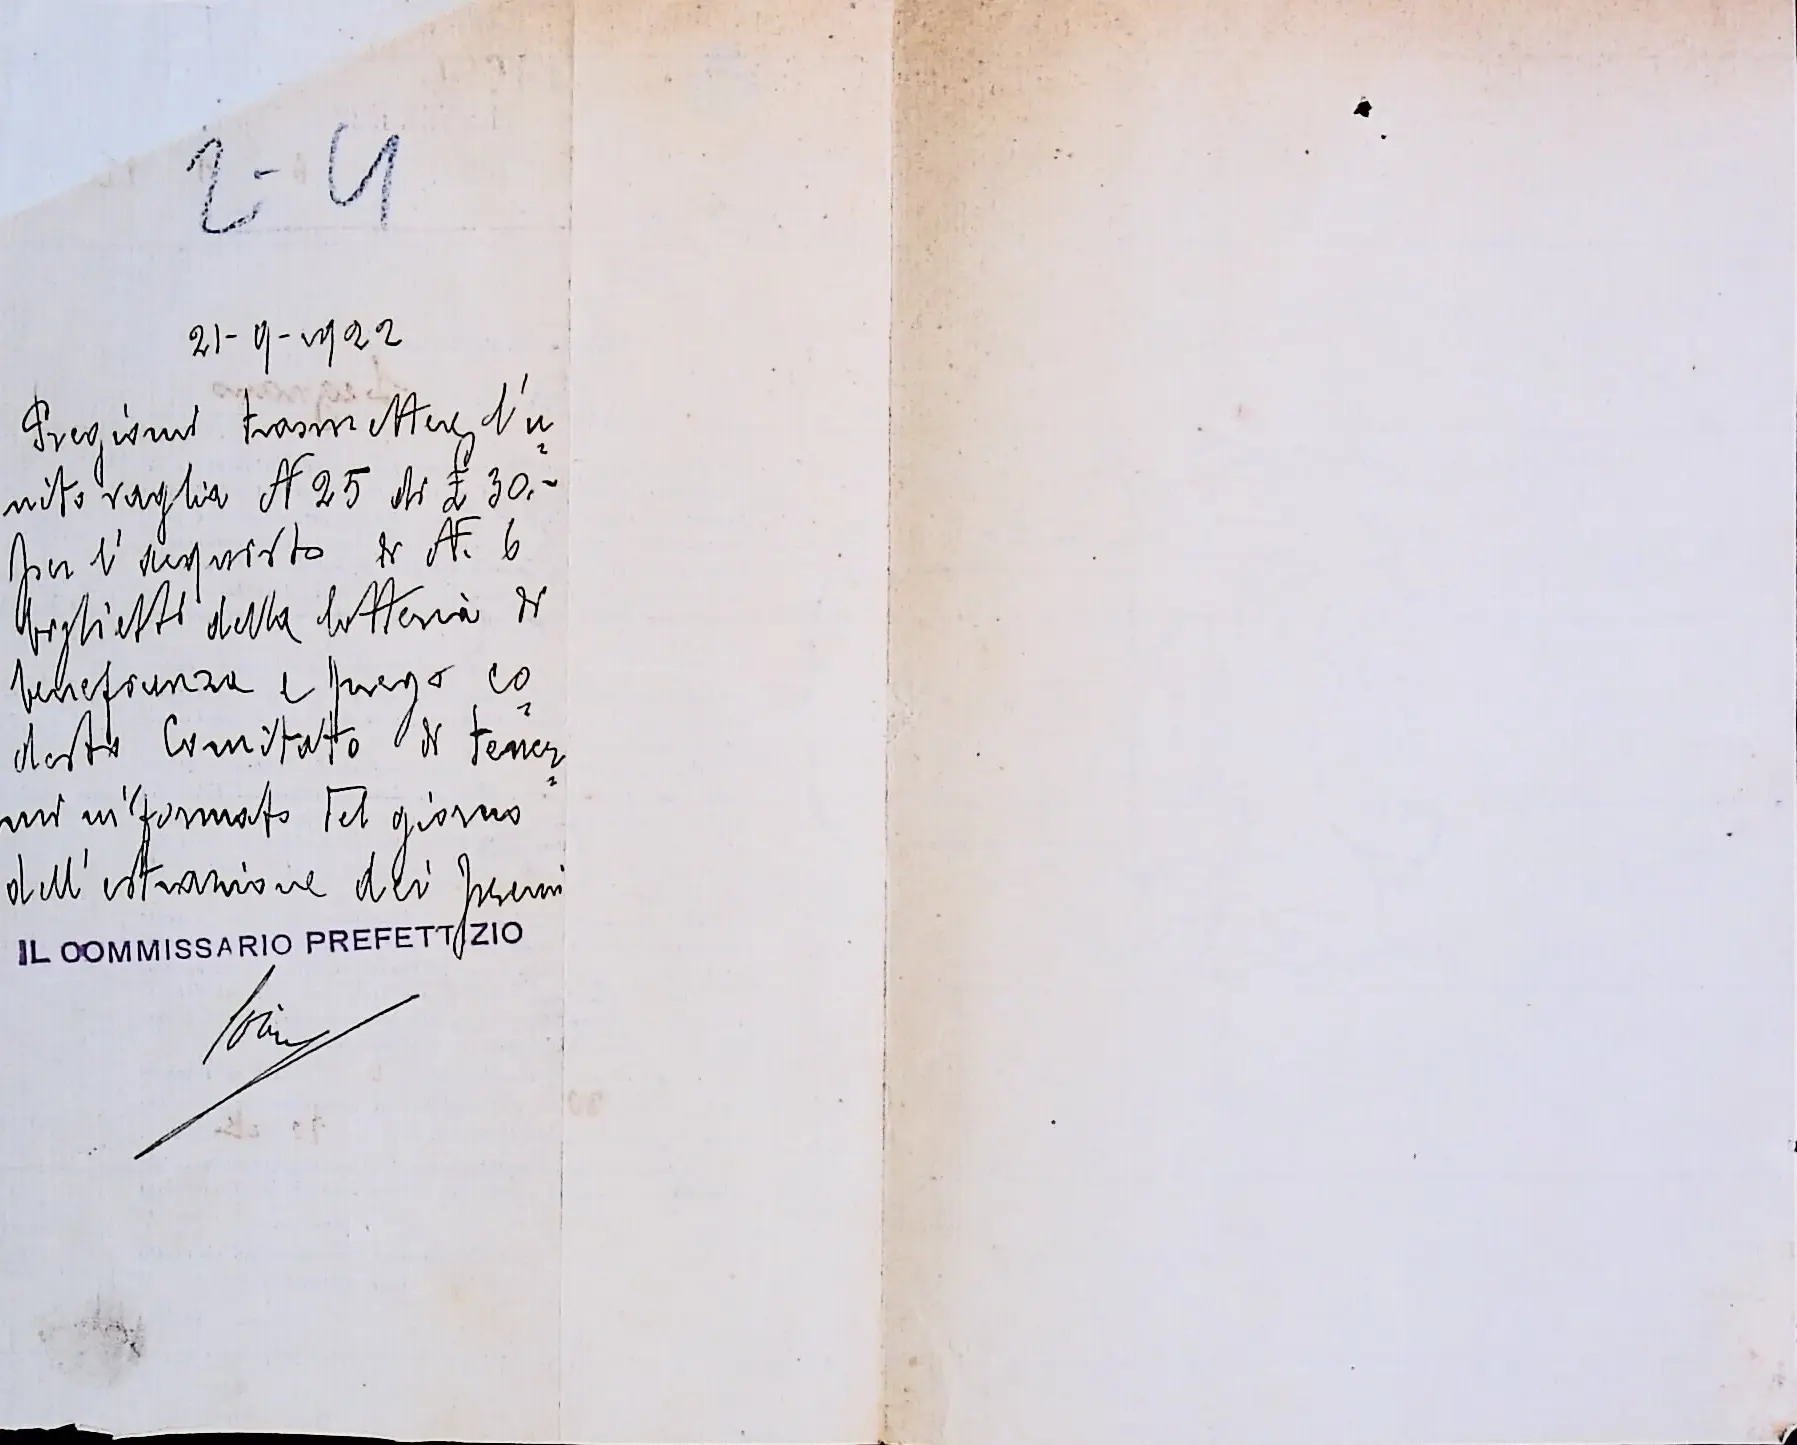 2-4
21-9-1922
Pregiomi trasmettere l'u=
nito vaglia N 25 di £ 30.-
per l'acquisto di N. 6
biglietti della lotteria di
beneficenza e prego co=
desto Comitato di tener=
mi informato del giorno
dell'estrazione dei premi
IL COMMISSARIO PREFETTIZIO